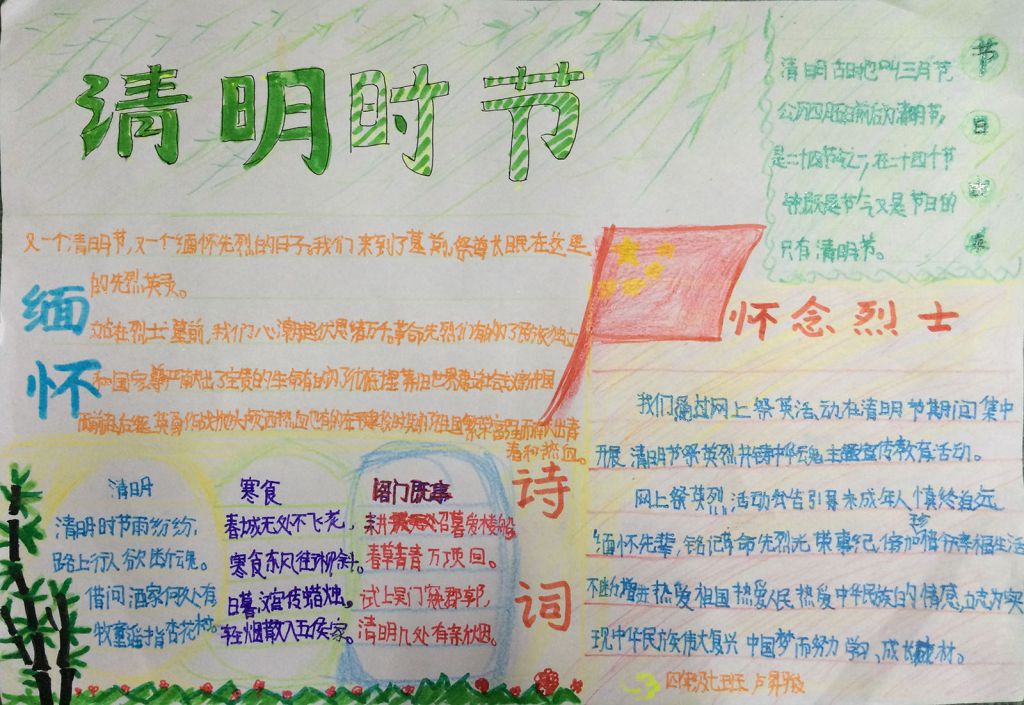 清明时节
清明古时也叫三月节
公历四月五日前后为清明节，
是二十四节气之一，在二十四个节
既是节气又是节日的
只有清明节。
节
日
又一个清明节，又一个缅怀先烈的日子。我们来到了墓前，祭奠长眠在这里
的先烈英灵。
缅
怀
站在烈士墓前，我们心潮起伏思绪万千革命先烈们有的为了民族独立
和国家尊严献出了宝贵的生命有的为了
青
春和热血。
怀念烈士
我们通过网上祭英活动在清明节期间集中
开展清明节祭英烈共铸中华魂主题宣传教育活动。
网上祭英烈活动公告引导未成年人慎终追远
缅怀先辈，铭记革命先烈光荣事纪，倍加珍惜幸福生活
不断增进热爱祖国热爱人民热爱中华民族的情感，立志为实
现中华民族伟大复兴中国梦而努力学习、成长成材。
诗
词
清明
清明时节雨纷纷，
路上行人欲断魂。
借问酒家何处有
牧童遥指杏花村。
寒食
春城无处不飞花，
寒食东风御柳斜。
日暮汉宫传蜡烛。
轻烟散入五侯家。
阊门既事
耕召募爱楼船
春草青青万顷田。
试上吴门窥郡郭，
清明几处有新烟。
四年级七班